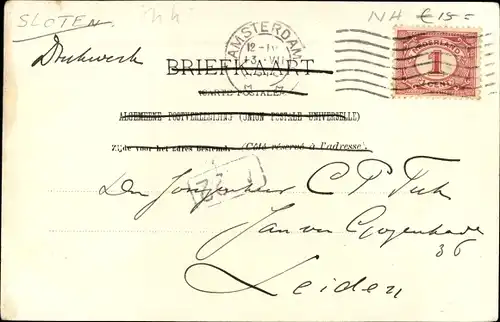 SLOTEN
NH € 15 =
Drukwerk
AMSTERDAM
12-1V
NEDERLAND
1
CENT
BRIEFKAART
(CARTE POSTALE)
ALGEMEENE POSTVEREENIGING (UNION POSTALE UNIVERSELLE)
Zijde voor het adres bestemd. (Côté réservé à l'adresse)
Den Jongenheer C P Tuk
Jan van Goyenkade
36
Leiden